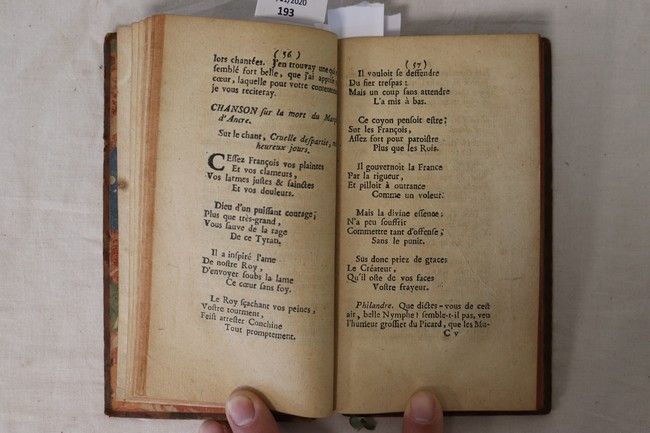 11/2020
193
( 56 )
lors chantées. J'en trouvay une qui
semblé fort belle, que j'ai appris
cœur, laquelle pour votre contentement
je vous reciteray.
CHANSON sur la mort du Mar
d'Ancre.
Sur le chant, Cruelle despartie,
heureux jours.
CEssez François vos plaintes
Et vos clameurs,
Vos larmes justes & sainctes
Et vos douleurs.
Dieu d'un puissant courage;
Plus que très-grand,
Vous sauve de la rage
De ce Tyran.
Il a inspiré l'ame
De nostre Roy,
D'envoyer soubs la lame
Ce cœur sans foy.
Le Roy sçachant vos peines,
Vostre tourment,
Feist arrester Conchine
Tout promptement.
( 57 )
Il vouloit se deffendre
Du fier trespas:
Mais un coup sans attendre
L'a mis à bas.
Ce coyon pensoit estre;
Sur les François,
Assez fort pour paroistre
Plus que les Rois.
Il gouvernoit la France
Par la rigueur,
Et pilloit à outrance
Comme un voleur.
Mais la divine essence;
N'a peu souffrir
Commettre tant d'offense,
Sans le punir.
Sus donc priez de graces
Le Créateur,
Qu'il oste de vos faces
Vostre frayeur.
Philandre. Que dictes-vous de cest
air, belle Nymphe? semble-t-il pas, veu
l'humeur grossier du Picard, que les Mu-
C v